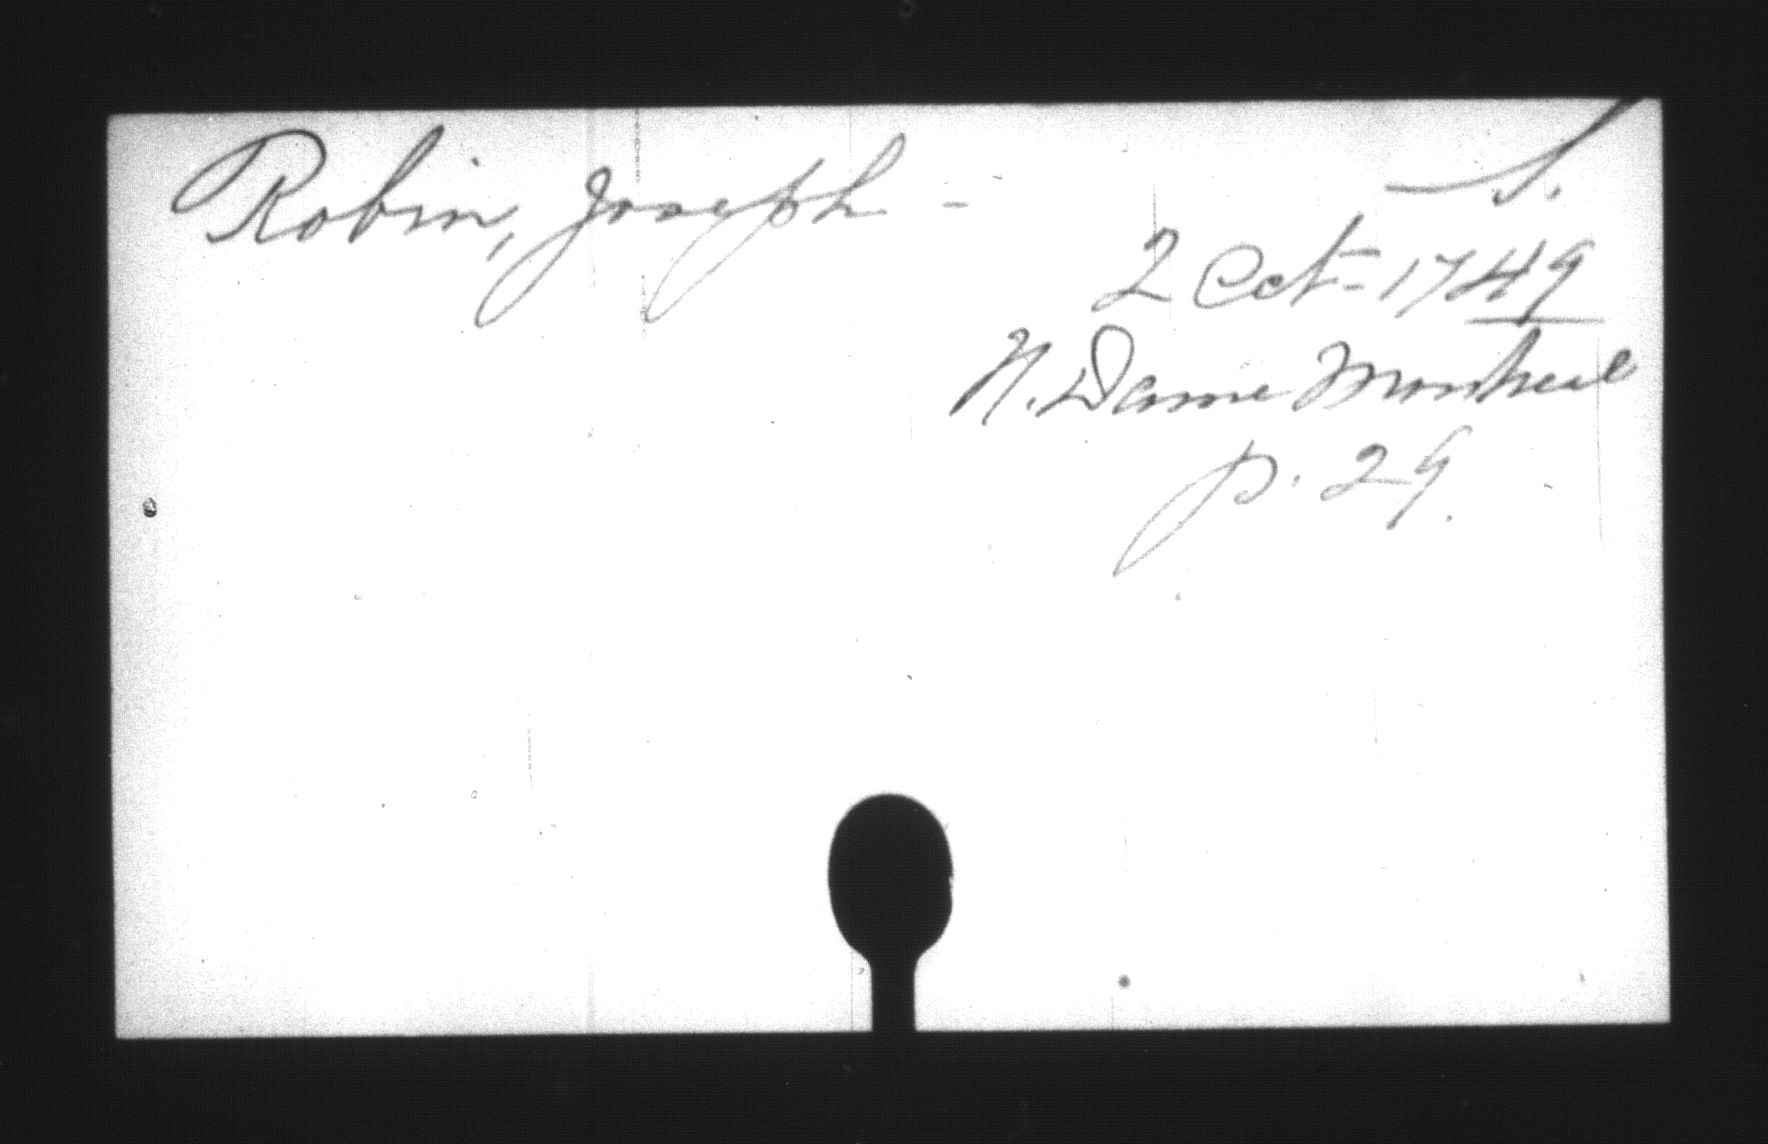 Robin, Joseph - S.
2 Oct - 1749
N. Dame Montreal
p. 29.